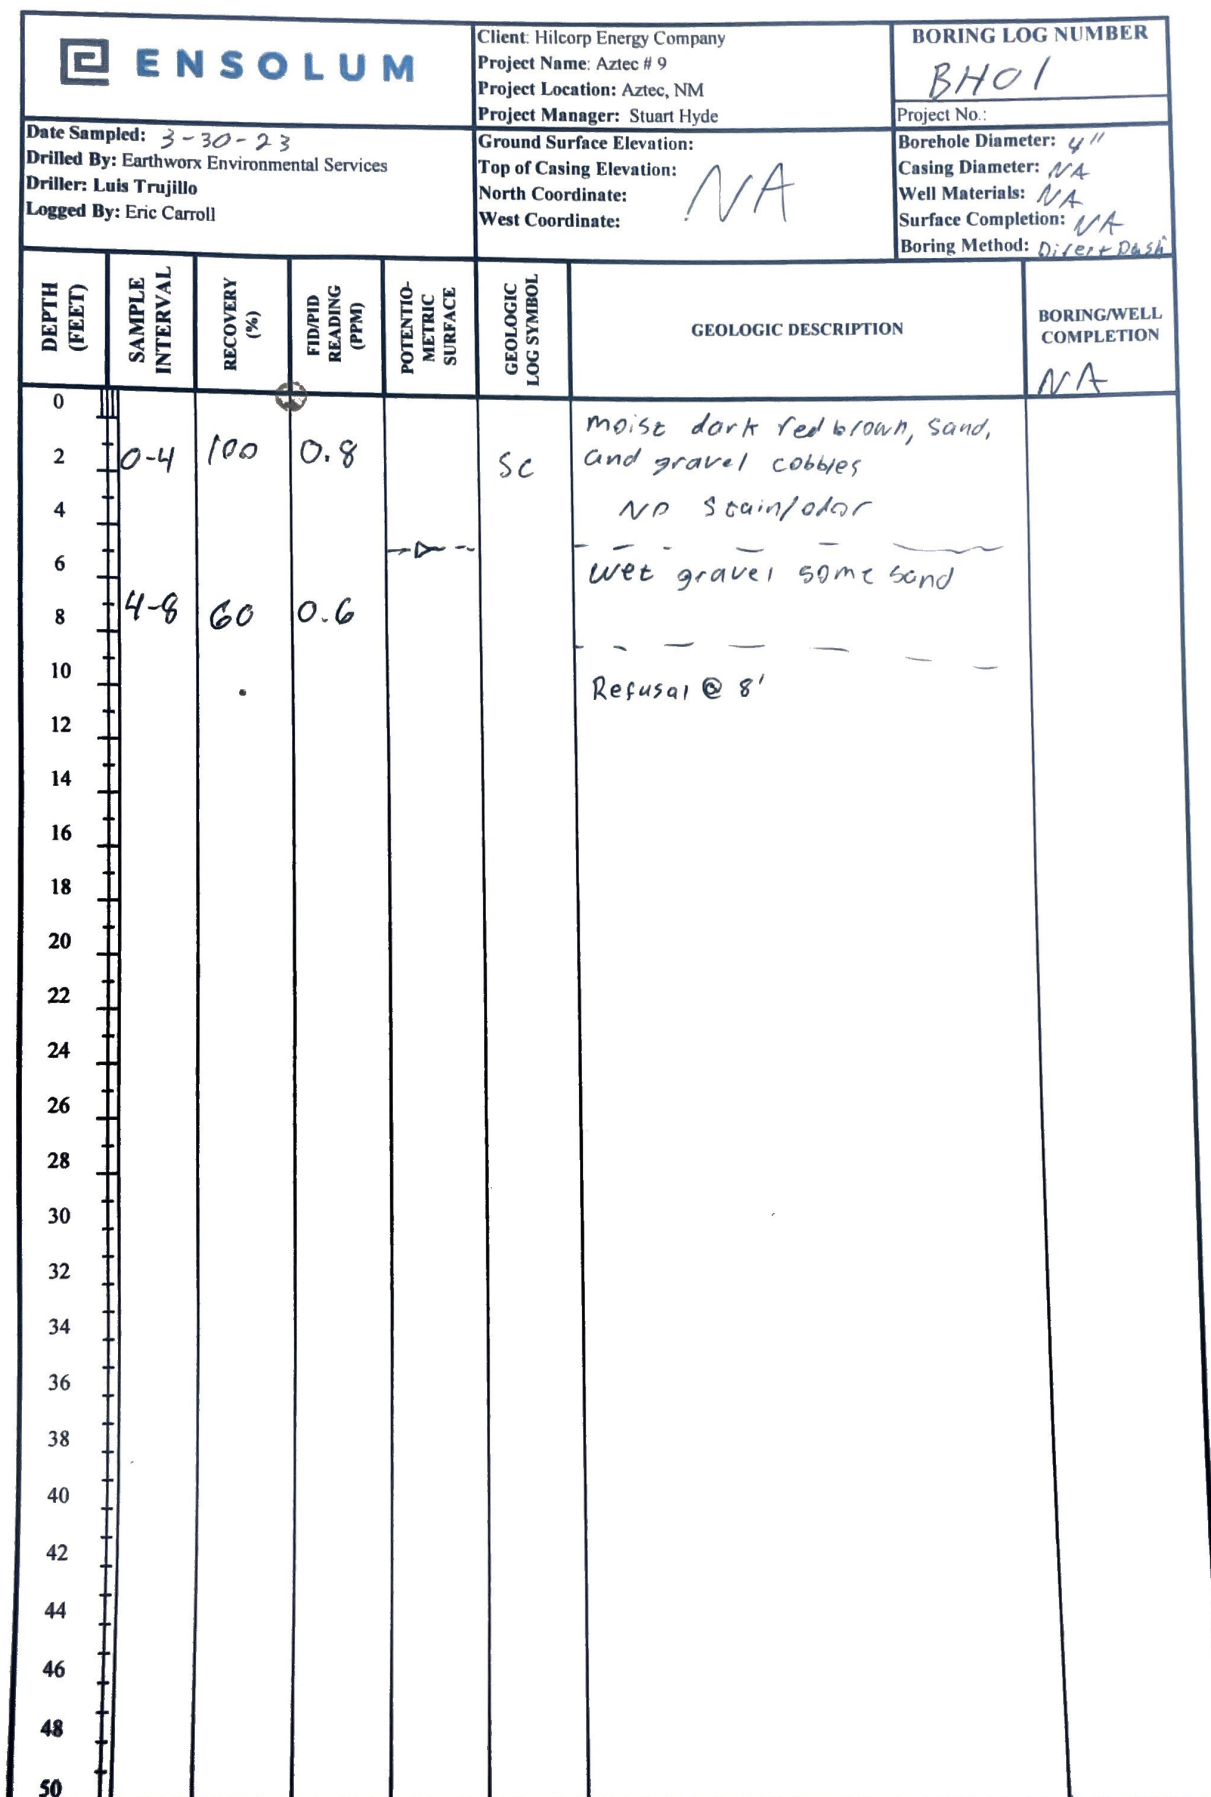 ENSOLUM
Client: Hilcorp Energy Company
Project Name: Aztec # 9
Project Location: Aztec, NM
Project Manager: Stuart Hyde
BORING LOG NUMBER
BH01
Project No.:
Date Sampled: 3-30-23
Drilled By: Earthworx Environmental Services
Driller: Luis Trujillo
Logged By: Eric Carroll
Ground Surface Elevation:
Top of Casing Elevation:
North Coordinate:
West Coordinate:
NA
Borehole Diameter: 4"
Casing Diameter: NA
Well Materials: NA
Surface Completion: NA
Boring Method: Direct Push
DEPTH
(FEET)
SAMPLE
INTERVAL
RECOVERY
(%)
FID/PID
READING
(PPM)
POTENTIO-
METRIC
SURFACE
GEOLOGIC
LOG SYMBOL
GEOLOGIC DESCRIPTION
BORING/WELL
COMPLETION
NA
0
moist dark red brown, sand,
2 0-4 100 0.8 SC and gravel cobbles
4 No stain/odor
6 wet gravel some sand
8 4-8 60 0.6
10 Refusal @ 8'
12
14
16
18
20
22
24
26
28
30
32
34
36
38
40
42
44
46
48
50